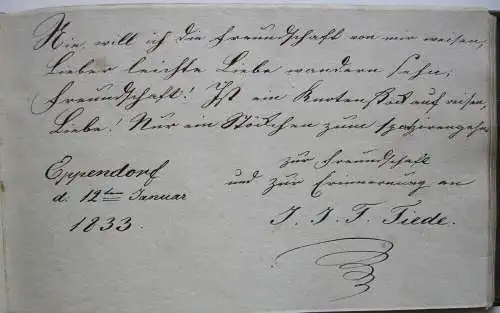 Nie, will ich die Freundschaft von mir weisen,
Lieber leichte Liebe wandern sehn,
Freundschaft! Ist ein Knotenstock auf reisen,
Liebe! Nur ein Stöckchen zum spazirengehn
zur Freundschaft
Eppendorf
und zur Erinnerung an
d. 12ten Januar
J. J. F. Tiede.
1833.